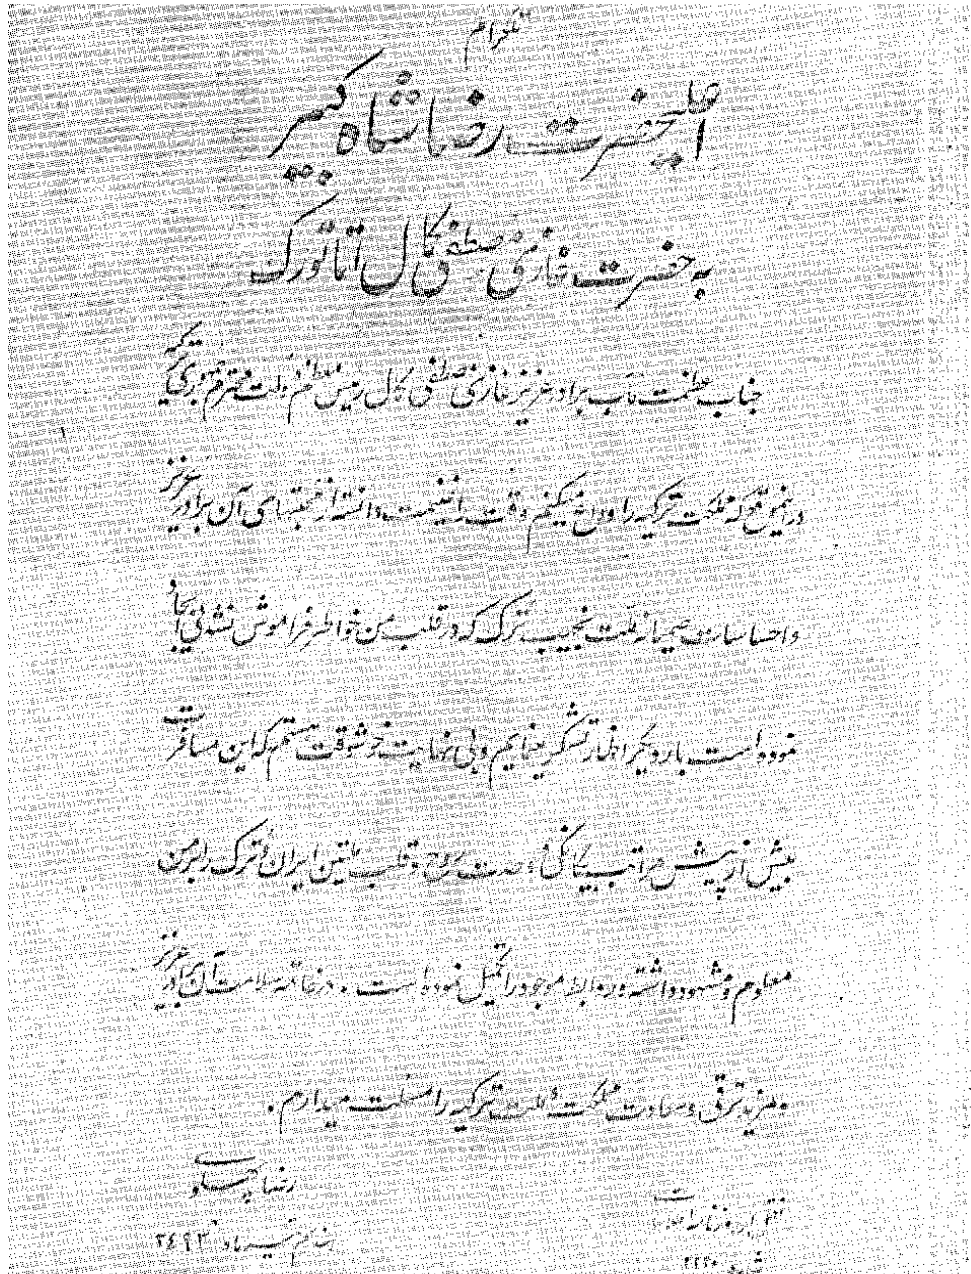 تلگرام
اعلیحضرت رضا شاه کبیر
به حضرت غازی مصطفی کمال اتاتورک
جناب عظمت مآب برادر عزیز غازی مصطفی کمال رئیس معظم دولت محترم جمهوری ترکیه
در اینموقع که مملکت ترکیه را وداع میکنم وقت را غنیمت دانسته از محبتهای آن برادر عزیز
و احساسات صمیمانه ملت نجیب ترک که در قلب من خواطر فراموش نشدنی ایجاد
نموده است بار دیگر اظهار تشکر مینمایم و بی نهایت خوشوقت هستم که این مسافرت
بیش از پیش مراتب یگانگی و وحدت روح و قلب ملتین ایران و ترک را بر من
معلوم و مشهود داشته و روابط موجود را تکمیل نموده است . در خاتمه سلامت آن برادر عزیز
و مزید ترقی و سعادت مملکت و ملت ترکیه را مسئلت میدارم .
رضا پهلوی
۲۴۹۳